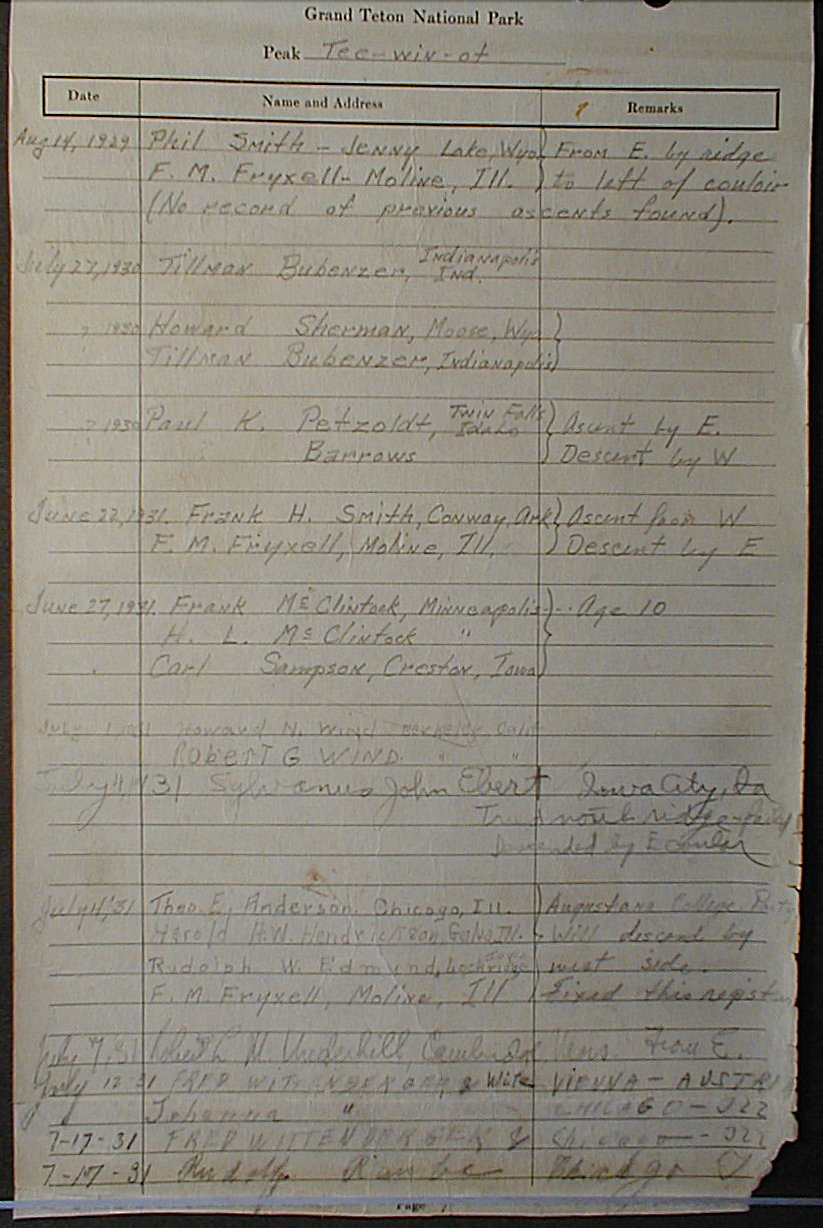 Grand Teton National Park
Peak Tee-win-ot
Date Name and Address Remarks
Aug 14, 1929 Phil Smith - Jenny Lake, Wyo. } From E. by ridge
F. M. Fryxell - Moline, Ill. } to left of couloir
(No record of previous ascents found).
July 27, 1930 Tillman Bubenzer, Indianapolis
Ind.
? 1930 Howard Sherman, Moose, Wyo }
Tillman Bubenzer, Indianapolis }
? 1930 Paul K. Petzoldt, Twin Falls Idaho } Ascent by E.
Barrows } Descent by W
June 22, 1931. Frank H. Smith, Conway, Ark } Ascent from W
F. M. Fryxell, Moline, Ill. } Descent by E
June 27, 1931. Frank McClintock, Minneapolis } -- Age 10
H. L. McClintock "
Carl Sampson, Creston, Iowa }
July 1931 Howard N. Wind Berkeley, Calif.
Robert G Wind. " "
July 4, 1931 Sylvanus John Ebert Iowa City, Ia
Tried north ridge
Descended by E
July 4, '31 Theo. E. Anderson. Chicago, Ill. } Augustana College Party
Harold H.W. Hendrickson, Ill. } Will descend by
Rudolph W. Edmund, } west side.
F. M. Fryxell, Moline, Ill } Fixed this register
July 7, 31 Robert L. M. Underhill, Cambridge From E.
July 12-31 FRED & Wife VIENNA - AUSTRIA
Johanna " CHICAGO - Ill
7-17-31 FRED WITTENBERGER & Chicago - Ill
7-17-31 Rudolf Chicago
Page